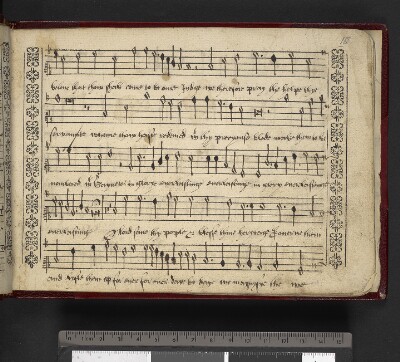 beleue that thou shalt come to be our Judge we therefore pray the helpe thy
servants whome thou hast redemed with thy precious blode make them to be
numbred with thy saynctes in glory everlastinge everlastinge in glory everlastinge
everlastinge O lord save thy people & blesse thine heritage governe them
and lyfte them up for ever for ever daye by daye we magnifie the we